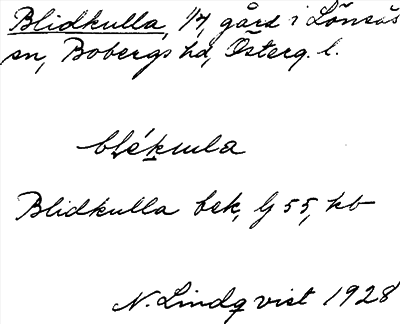 Blidkulla, 1/4, gård i Lönsås
sn, Bobergs hd, Österg. l.
blékųla
Blidkulla bek, Lj 55, kb
N. Lindqvist 1928